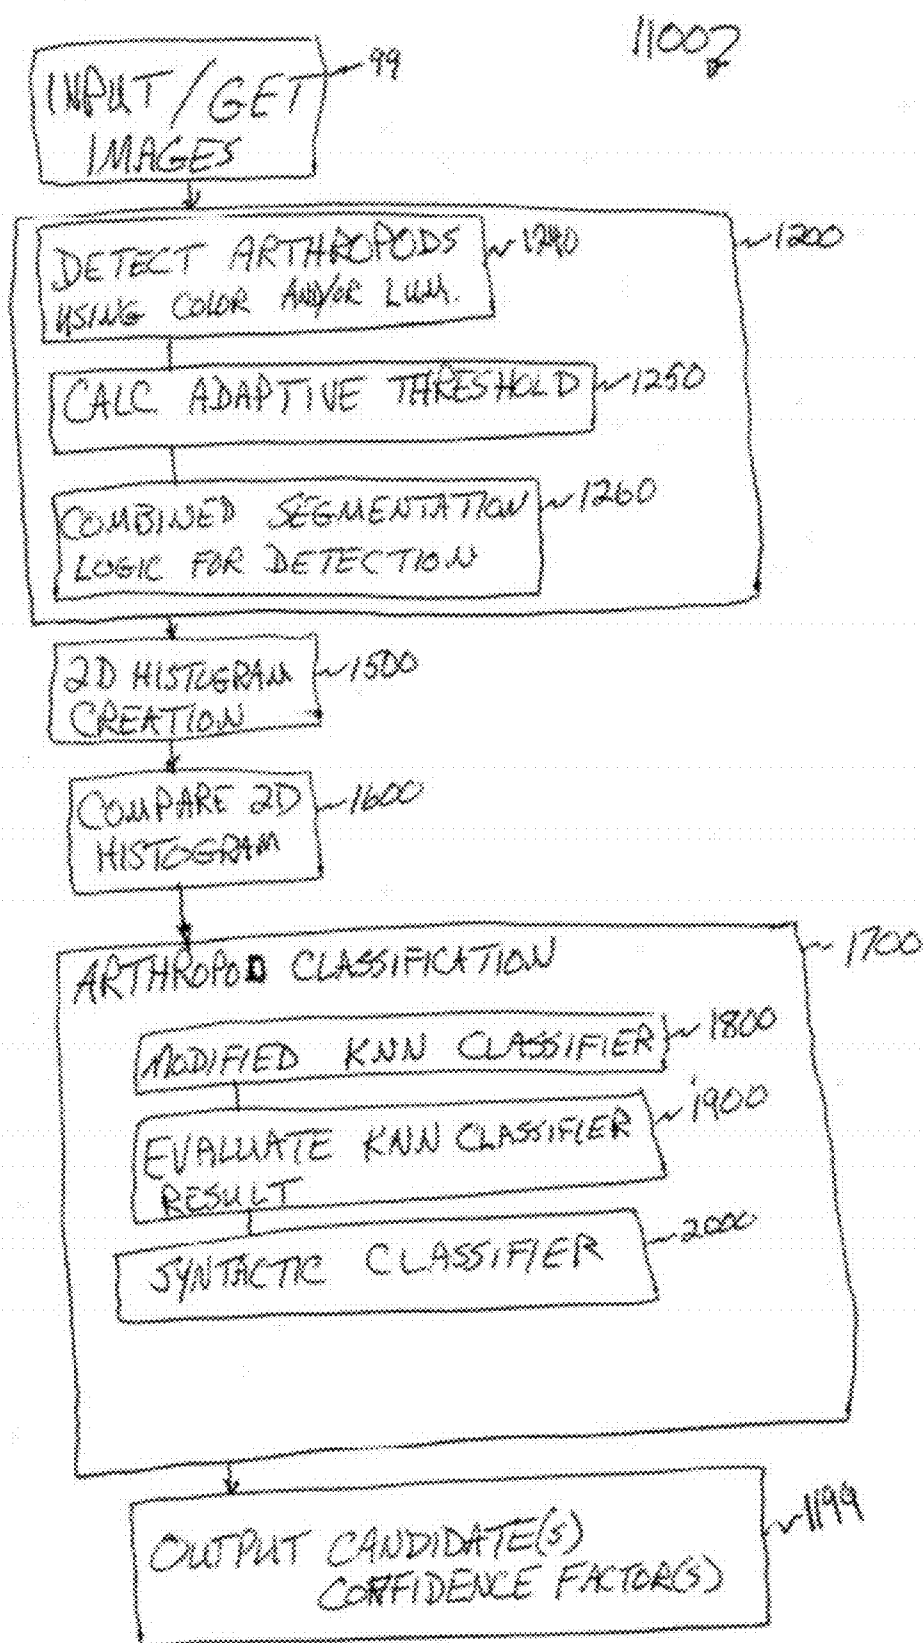 1100
INPUT / GET
IMAGES
99
DETECT ARTHROPODS
USING COLOR AND/OR LUM.
1240
1200
CALC ADAPTIVE THRESHOLD
1250
COMBINED SEGMENTATION
LOGIC FOR DETECTION
1260
2D HISTOGRAM
CREATION
1500
COMPARE 2D
HISTOGRAM
1600
ARTHROPOD CLASSIFICATION
1700
MODIFIED KNN CLASSIFIER
1800
EVALUATE KNN CLASSIFIER
RESULT
1900
SYNTACTIC CLASSIFIER
2000
OUTPUT CANDIDATE(S)
CONFIDENCE FACTOR(S)
1199